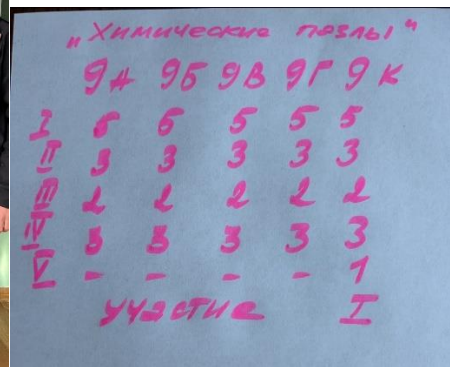 "Химические пазлы"
9А 9Б 9В 9Г 9К
I 5 5 5 5 5
II 3 3 3 3 3
III 2 2 2 2 2
IV 3 3 3 3 3
V - - - - 1
участие I